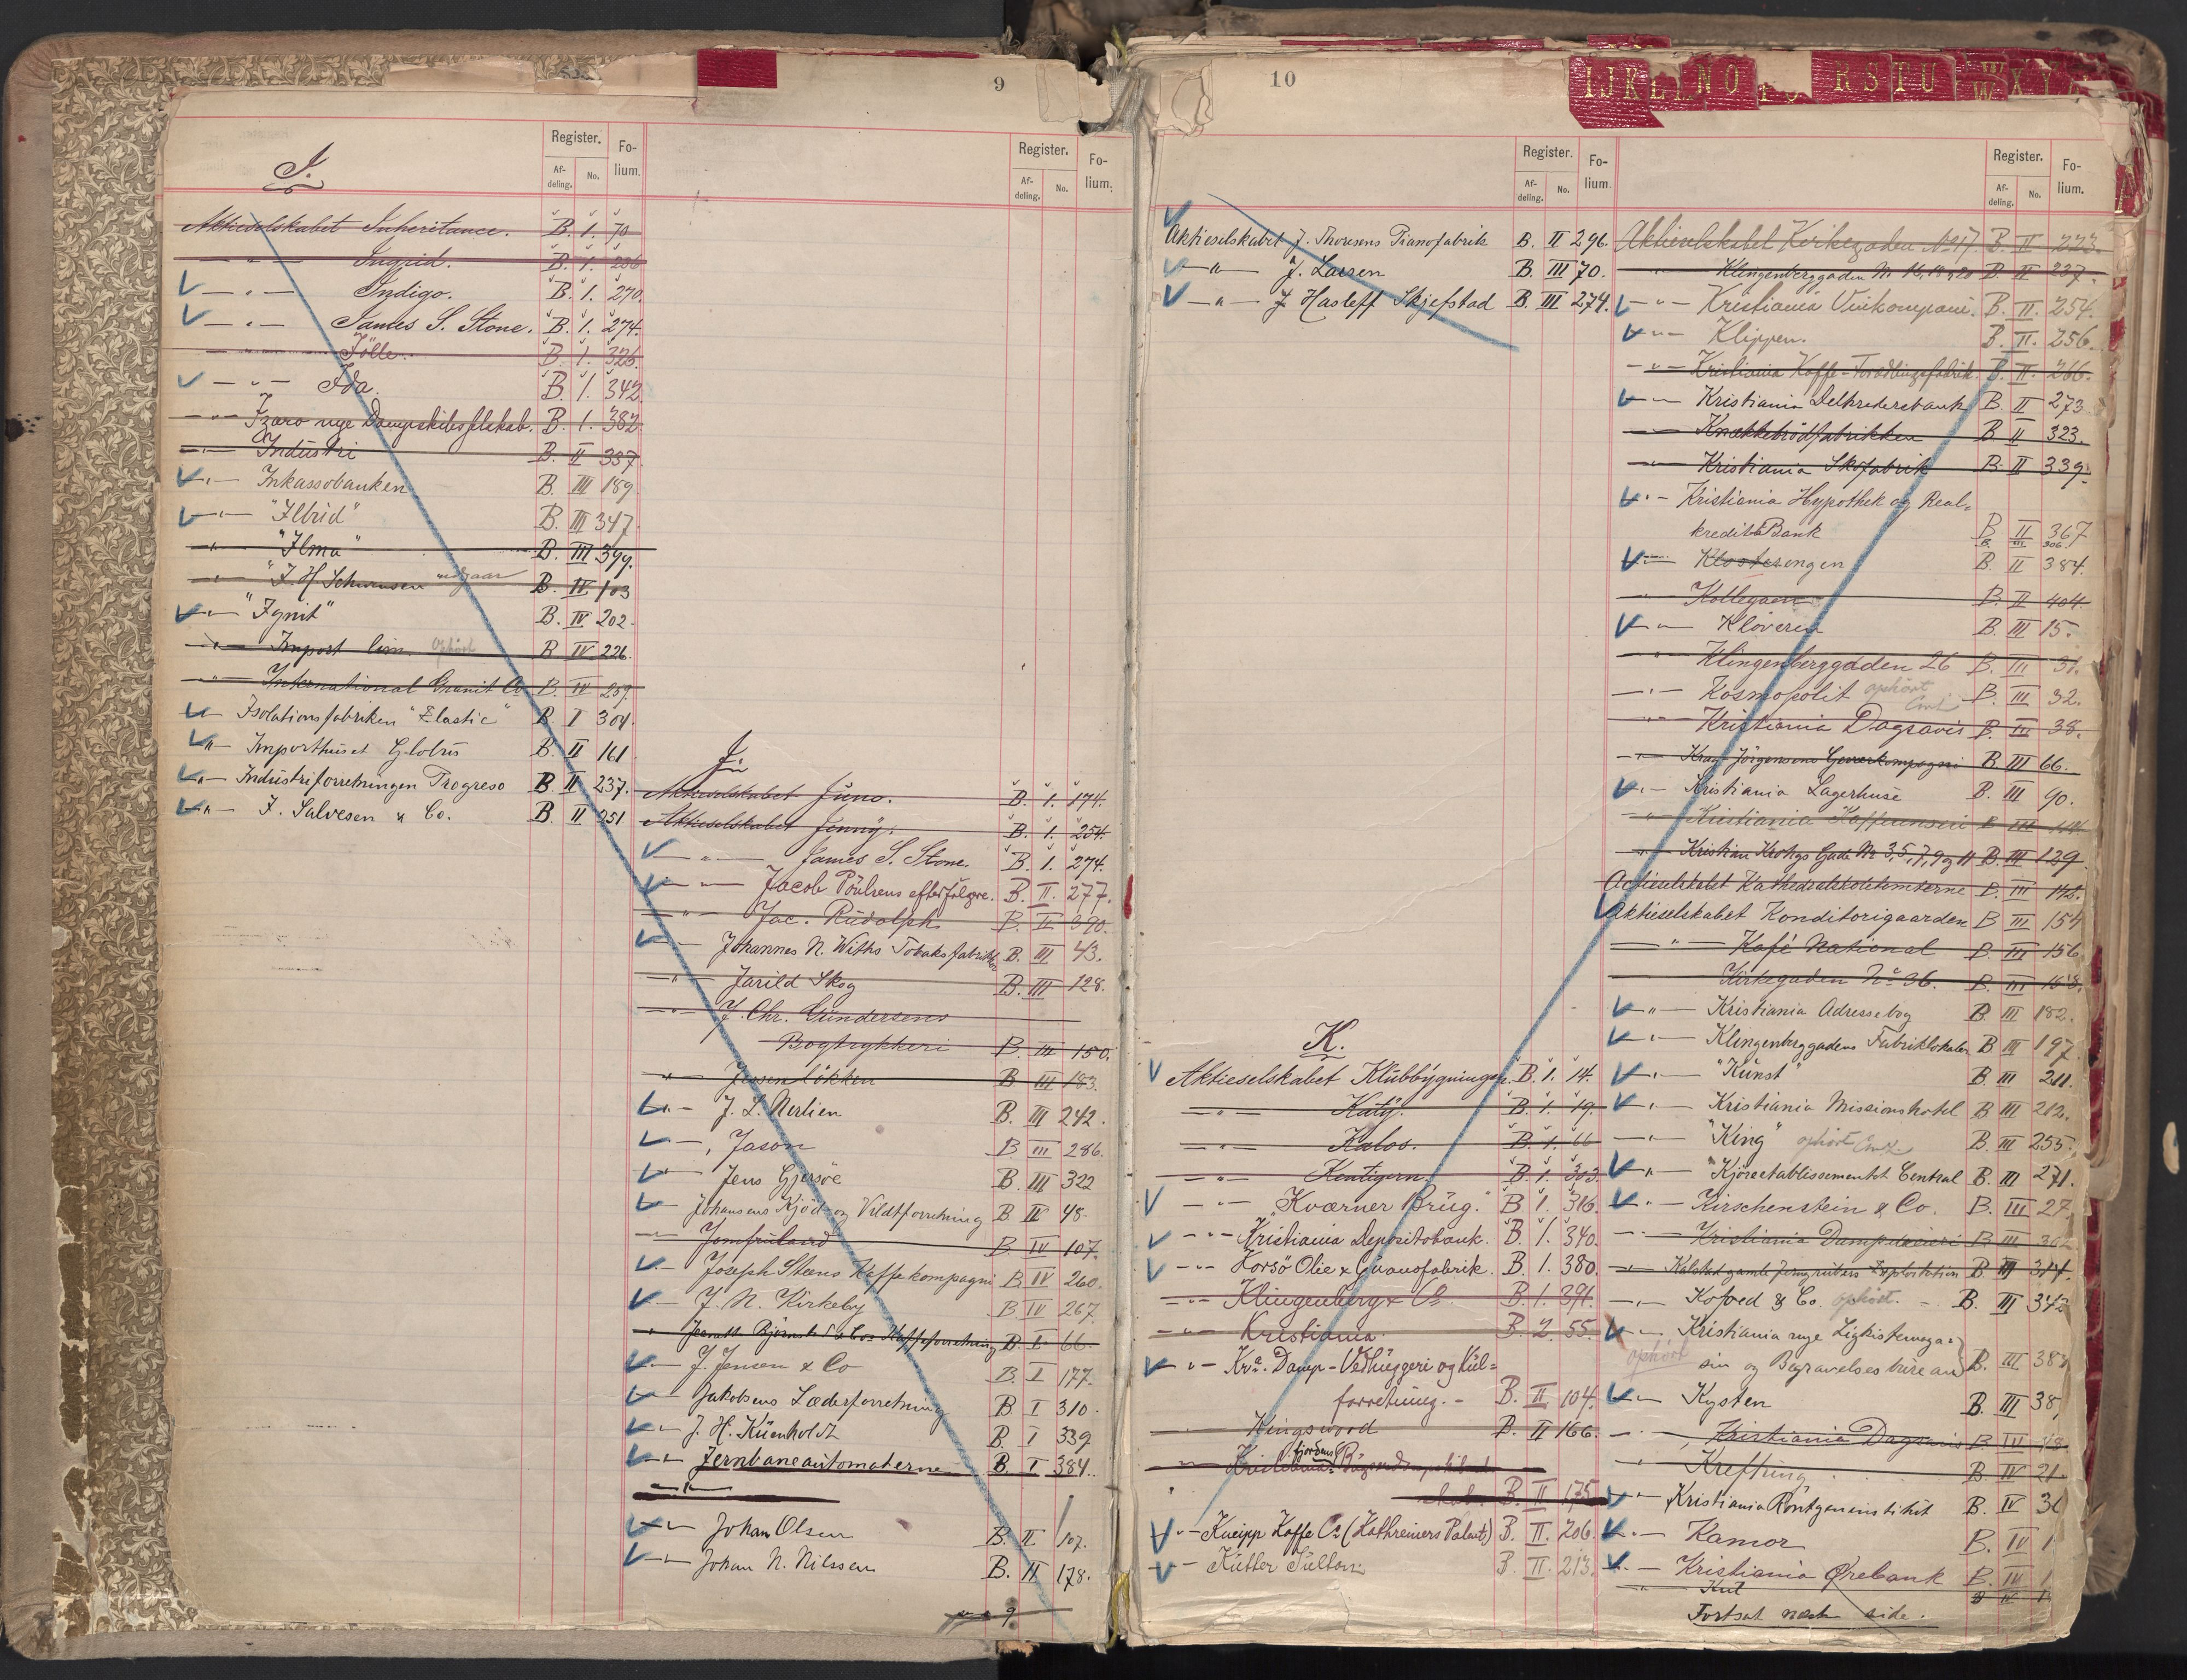 9
I.
Register. Fo-
Af- No. lium.
deling.
Aktieselskabet Inheritance. B. 1. 70
— " — Ingrid. B. 1. 206
— " — Indigo. B. 1. 270.
— " — James S. Stone. B. 1. 274.
B. 1. 326.
— " — Ida. B. 1. 342.
— " — nye Dampskibsselskab. B. 1. 382.
— " — Industri B. II 337.
— " — Inkassobanken B. III 189
— " — "Ilbrid" B. III 347.
— " — "Ilma" B. III 399.
— " — "I. H. B. IV 103
— " — "Ignit" B. IV 202.
— " — Import Ophört B IV 226.
— " — International Granit Co B. IV 259.
— " — Isolationsfabriken "Elastic" B I 304.
— " — Importhuset Globus B. II 161
— " — Industriforretningen Progreso B II 237.
— " — I. Salvesen & Co. B. II 251
Register. Fo-
Af- No. lium.
deling.
J.
Aktieselskabet Juno. B. 1. 174.
Aktieselskabet Jenny. B. 1. 254.
— " — James S. Stone. B. 1. 274.
— " — Jacob Poulsens efterfølgere. B. II. 277.
— " — Jac. Rudolph B. II 390.
— " — Johannes N. Withs Tobaksfabrikker B. III 43.
— " — Jarild Skog B. III 128.
— " — J. Chr. Gundersens
Bogtrykkeri B. III 150.
— " — B III 183.
— " — J. L. Nerlien B. III 242.
— " — Jason B III 286.
— " — Jens Gjersöe B. III 322
— " — Johansens Kjöd- og Vildtforretning B. IV 48.
— " — Jomfruland B. IV 107.
— " — Joseph Steens Kaffekompagni B IV 260.
— " — J. N. Kirkeby B. IV 267.
Kaffeforretning B. I 66.
— " — J. Jensen & Co B. I 177.
— " — Jakobsens Læderforretning B I 310.
— " — J. H. Küenholdt B. I 339
— " — Jernbaneautomaterne B. I 384.
— " — Johan Olsen B. II 107.
— " — Johan N. Nilssen B. II 178.
9
10
IJKL NO RSTU W X Y
Register. Fo-
Af- No. lium.
deling.
Aktieselskabet J. Thoresens Pianofabrik B. II 296.
— " — J. Larsen B. III 70.
— " — J. Hasleff Skjefstad B. III 274.
K.
Aktieselskabet Klubbygningen. B. 1. 14.
— " — Katy. B. 1. 19.
— " — Kalos. B. 1. 66
— " — Kentigern. B. 1. 303.
— " — "Kværner Brug." B 1. 316.
— " — Kristiania Depositobank. B. 1. 340.
— " — Korsö Olie & Guanofabrik. B. 1. 380.
— " — Klingenberg & Co. B. 1. 391.
— " — Kristiania. B. 2. 55.
— " — Kra. Damp-Vedhuggeri og Kul-
forretning. — B. II 104.
— " — Kingswood B. II 166.
fjordens
B. II 175
— " — Kneipp Kaffe Co (Kathreiners Patent) B. II. 206.
— " — Kutter Sultan B. II. 213.
Register. Fo-
Af- No. lium.
deling.
Aktieselskabet Kirkegaden No 17 B. II 223.
— " — Klingenberggaden Nr 16, 18 og 20 B. II 237.
— " — Kristiania Vinkompani. B. II. 254.
— " — Klippen. B. II. 256.
— " — Kristiania Kaffe-Forædlingsfabrik. B. II. 266.
— " — Kristiania Delkrederebank B. II 273
— " — Knækkebrödfabrikken B II 323.
— " — Kristiania Skofabrik B. II 339.
— " — Kristiania Hypothek og Real-
kreditBank B II 367
B. III 306.
— " — Klosterengen B. II 384.
— " — B. II 404.
— " — Klöveren B. III 15.
— " — Klingenberggaden 26 B. III 31.
— " — Kosmopolit ophört B. III 32.
— " — Kristiania Dagsavis B. III 38.
— " — B. III 66.
— " — Kristiania Lagerhuse B. III 90.
— " — Kristiania B. III 114
— " — Kristian Krohgs Gade Nr 3, 5, 7, 9 og 11 B. III 129.
Actieselskabet Kathedralskoletomterne B. III 148.
Aktieselskabet Konditorigaarden B III 154
— " — Kafé National B. III 156
Kirkegaden No 36. B. III 163.
— " — Kristiania Adressebog B III 182.
— " — Klingenberggadens Fabriklokaler B III 197
— " — "Kunst" B. III 211.
— " — Kristiania Missionshotel B III 212.
— " — "King" ophört B. III 255.
— " — "Kjöreetablissementet Central B. III 271.
— " — Kirschenstein & Co. B. III 27
— " — Kristiania B. III 30
— " — Kalstad gamle Jerngrubers Exploitation B III 314.
— " — Kofoed & Co. ophört. — B. III 342
— " — Kristiania nye Ligkistemaga-
ophört sin og Begravelsesbureau B. III 38
— " — Kysten B. III 38
— " — Kristiania Dagsavis B. IV
— " — Krefting B. IV 21
— " — Kristiania Röntgeninstitut B. IV 3
— " — Kamor B. IV 1
— " — Kristiania Ørebank B.
Fortsat næste side.